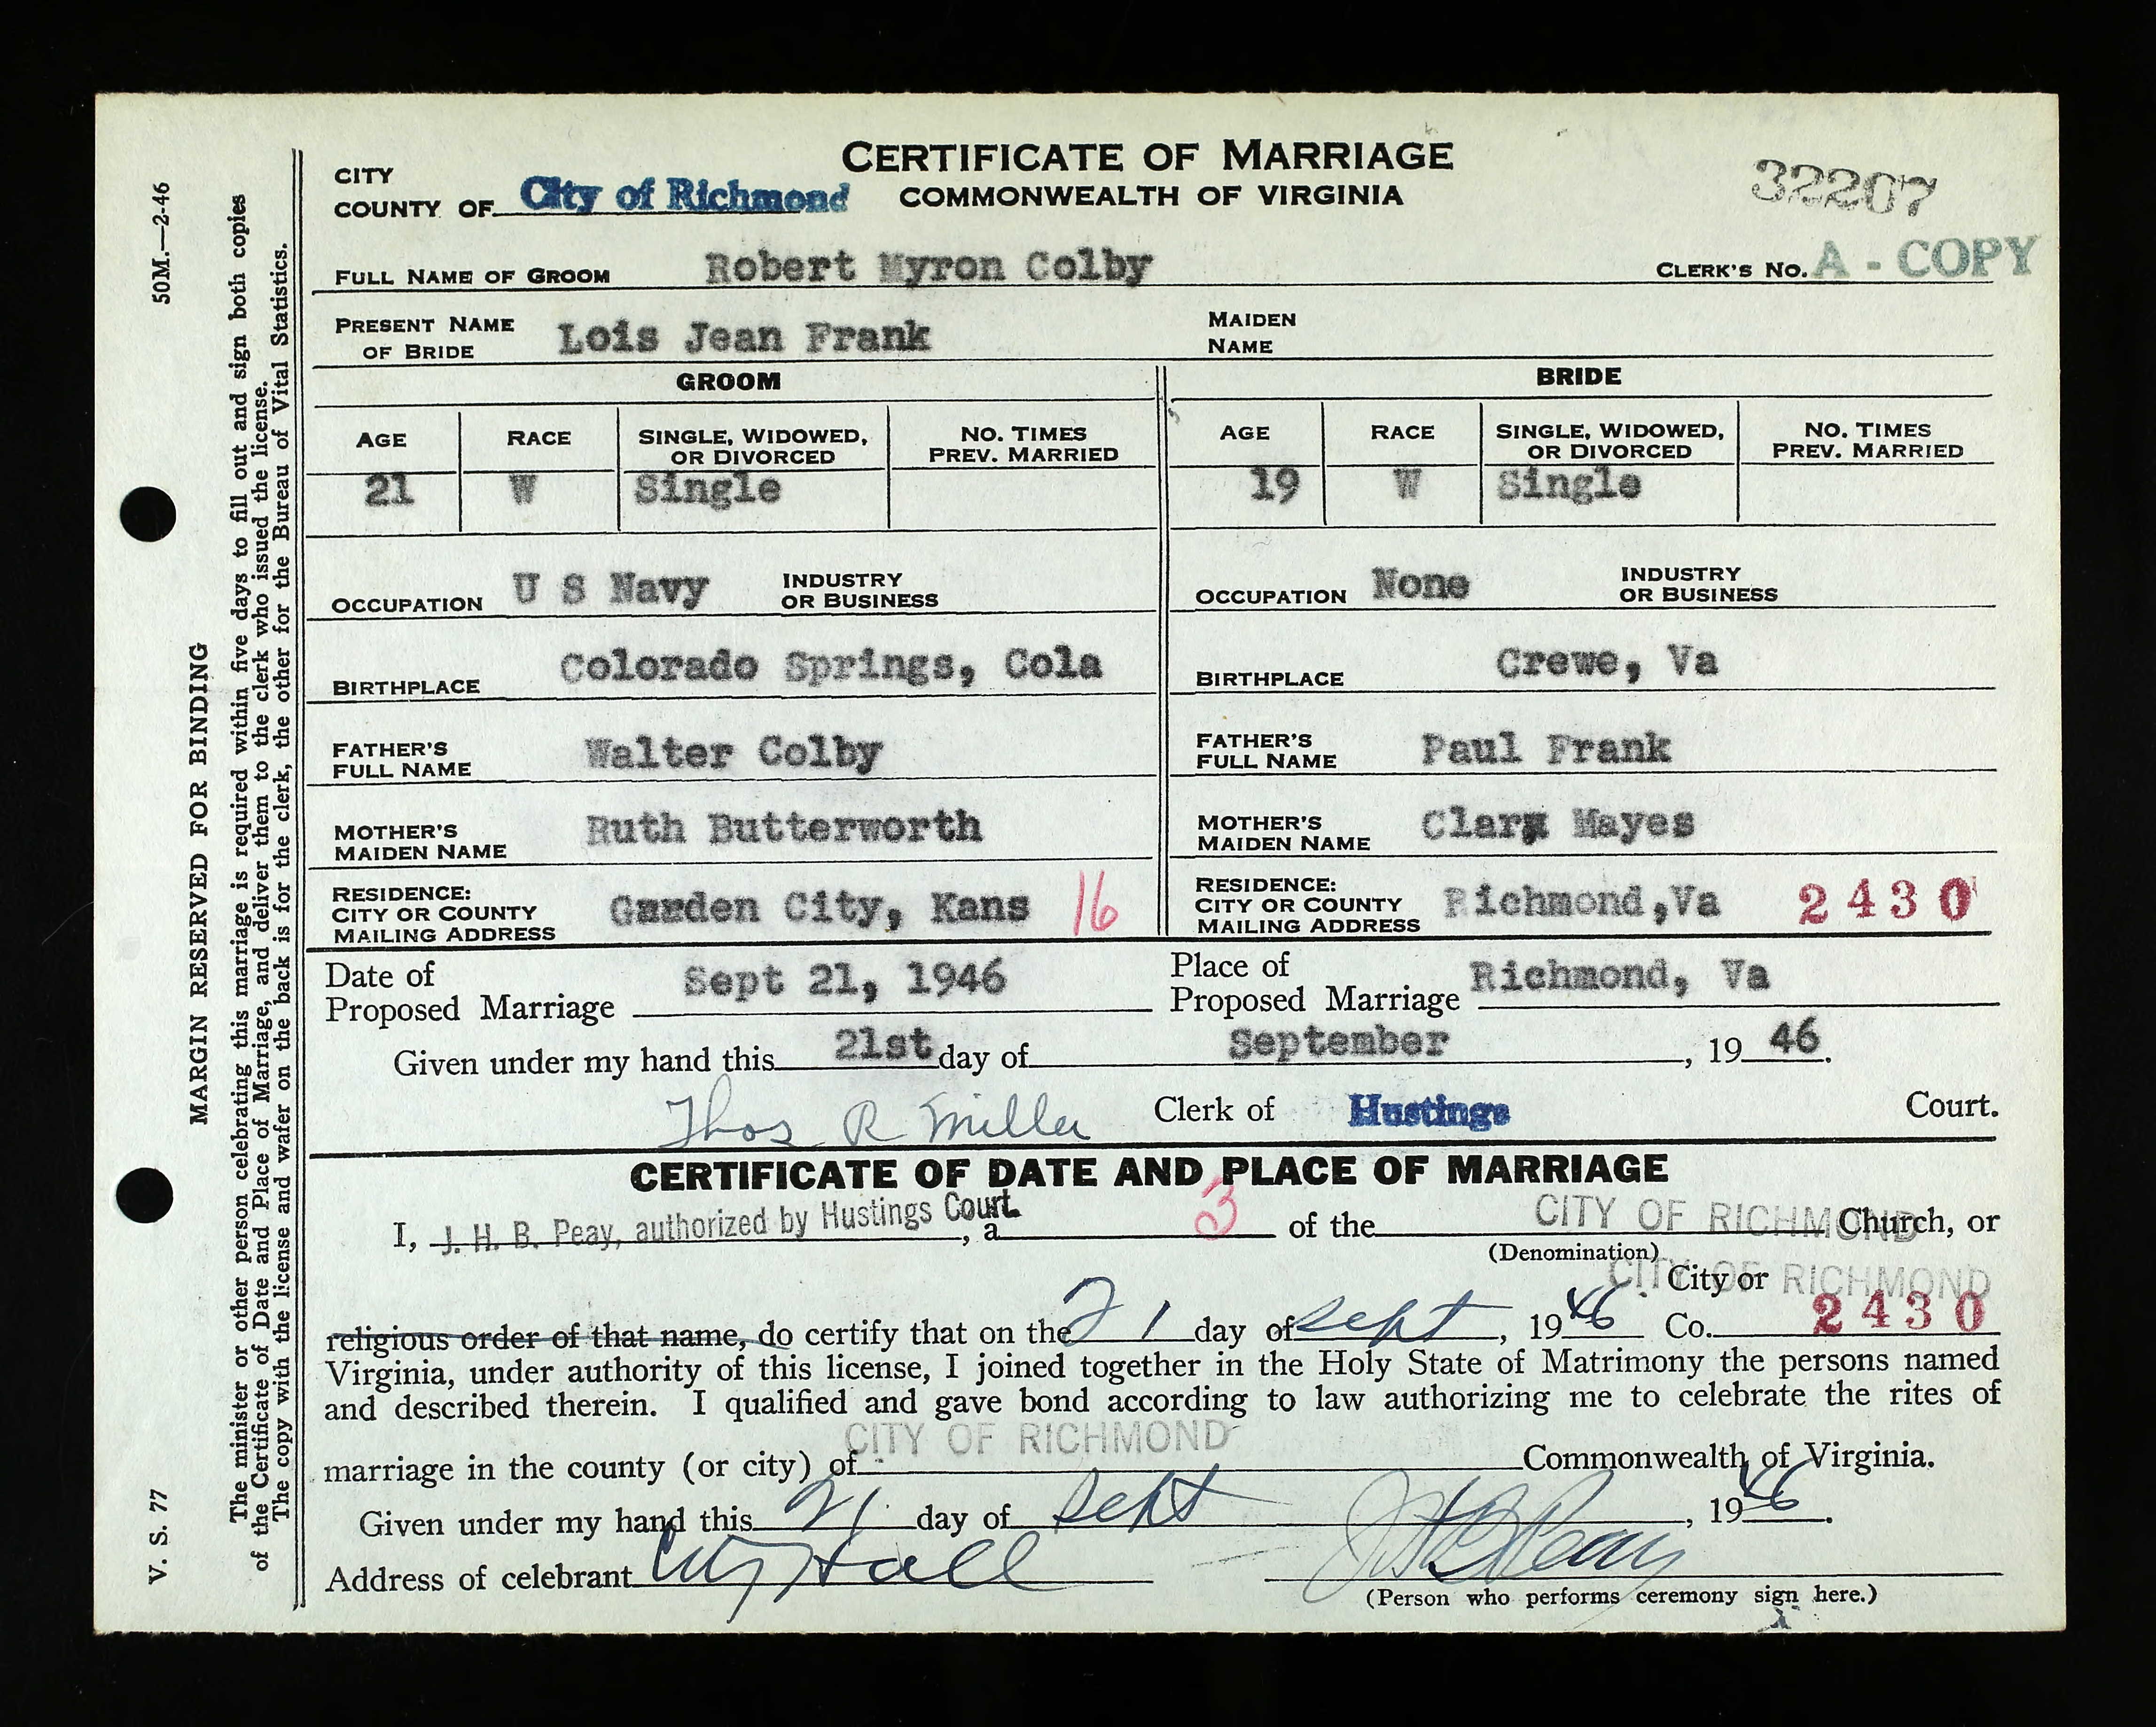 CERTIFICATE OF MARRIAGE
COMMONWEALTH OF VIRGINIA
CITY
COUNTY OF City of Richmond
32207
FULL NAME OF GROOM Robert Myron Colby CLERK'S NO. A - COPY
PRESENT NAME OF BRIDE Lois Jean Frank MAIDEN NAME
GROOM BRIDE
AGE RACE SINGLE, WIDOWED, OR DIVORCED NO. TIMES PREV. MARRIED AGE RACE SINGLE, WIDOWED, OR DIVORCED NO. TIMES PREV. MARRIED
21 W Single 19 W Single
OCCUPATION U S Navy INDUSTRY OR BUSINESS OCCUPATION None INDUSTRY OR BUSINESS
BIRTHPLACE Colorado Springs, Cola BIRTHPLACE Crewe, Va
FATHER'S FULL NAME Walter Colby FATHER'S FULL NAME Paul Frank
MOTHER'S MAIDEN NAME Ruth Butterworth MOTHER'S MAIDEN NAME Mayes
RESIDENCE: CITY OR COUNTY MAILING ADDRESS Garden City, Kans 16 RESIDENCE: CITY OR COUNTY MAILING ADDRESS Richmond,Va 2430
Date of Proposed Marriage Sept 21, 1946 Place of Proposed Marriage Richmond, Va
Given under my hand this 21st day of September, 19 46.
Thos R Miller Clerk of Hustings Court.
CERTIFICATE OF DATE AND PLACE OF MARRIAGE
I, J. H. B. Peay, authorized by Hustings Court, a 3 of the CITY OF RICHMOND Church, or
(Denomination)
CITY OF RICHMOND City or
religious order of that name, do certify that on the 21 day of Sept, 19 46. Co. 2430
Virginia, under authority of this license, I joined together in the Holy State of Matrimony the persons named
and described therein. I qualified and gave bond according to law authorizing me to celebrate the rites of
marriage in the county (or city) of CITY OF RICHMOND Commonwealth of Virginia.
Given under my hand this 21 day of Sept, 19 46.
Address of celebrant City Hall J H B Peay
(Person who performs ceremony sign here.)
V. S. 77 50M.—2-46
MARGIN RESERVED FOR BINDING
The minister or other person celebrating this marriage is required within five days to fill out and sign both copies
of the Certificate of Date and Place of Marriage, and deliver them to the clerk who issued the license.
The copy with the license and wafer on the back is for the clerk, the other for the Bureau of Vital Statistics.